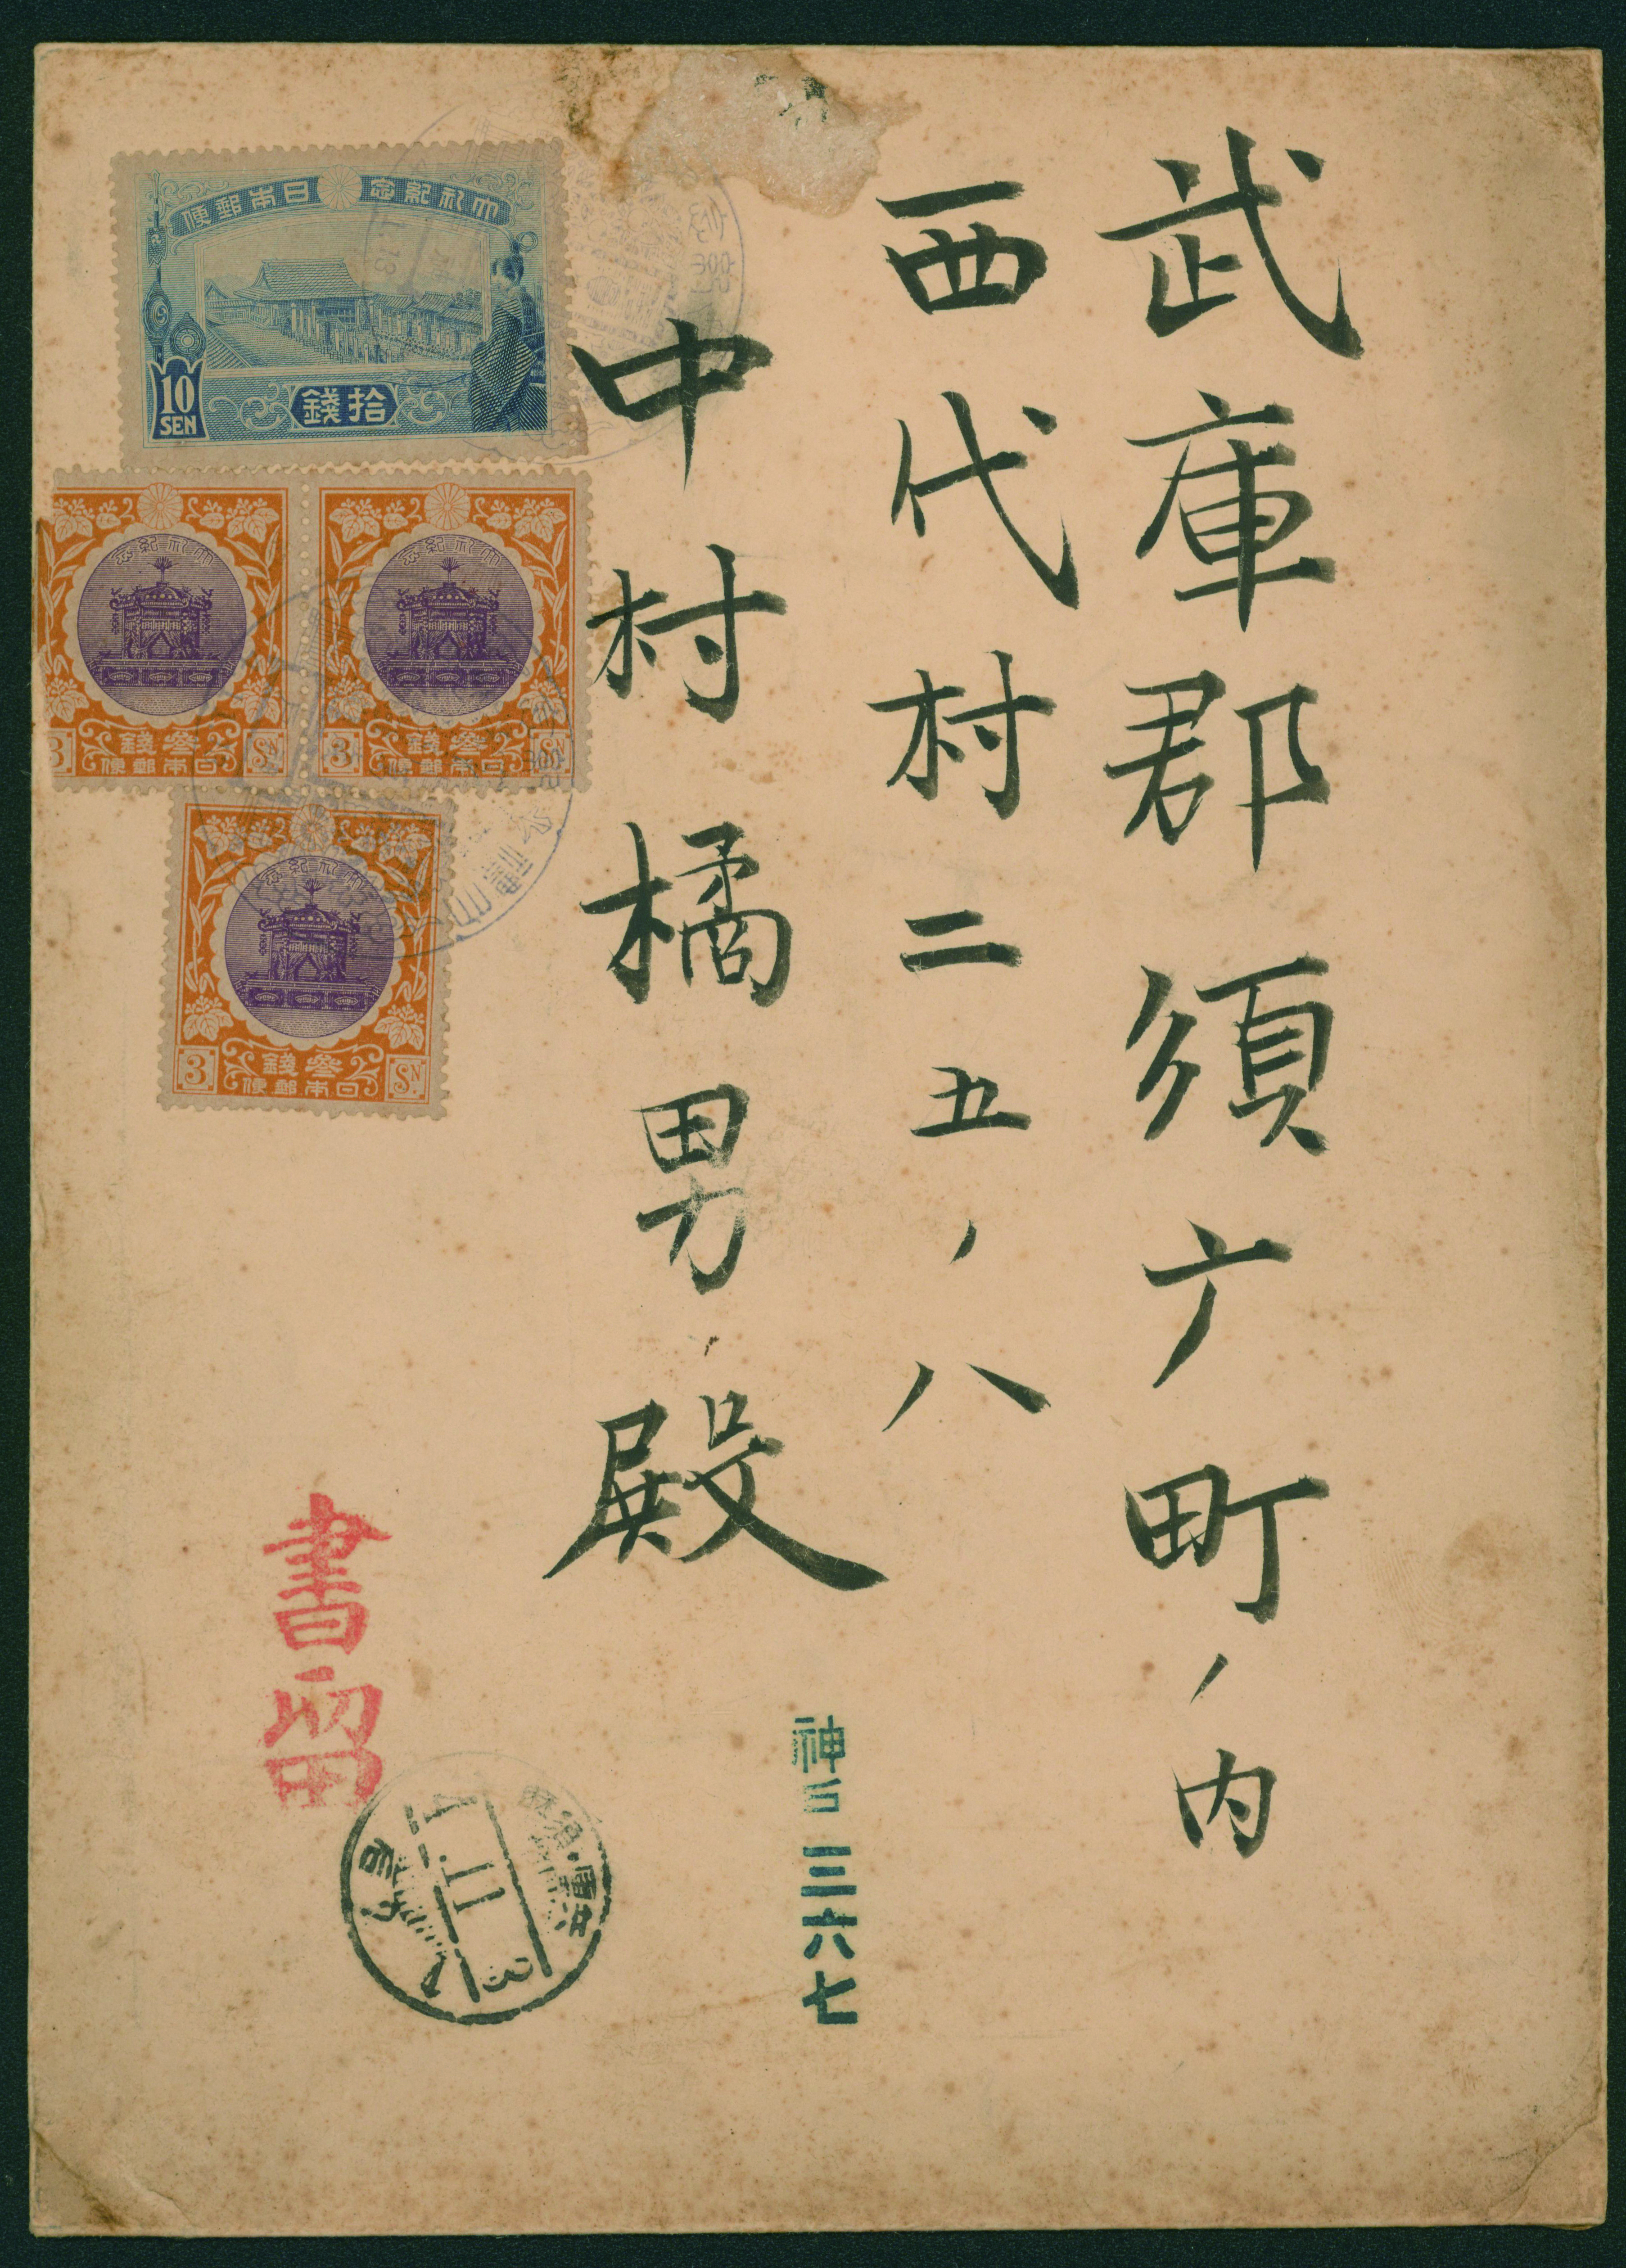 武庫郡須广町ノ内
西代村二五ノ八
中村橘男殿
大礼紀念 日本郵便
10
SEN
拾錢
大礼紀念
3 參錢 SN
日本郵便
大礼紀念
3 參錢 SN
日本郵便
大礼紀念
3 參錢 SN
日本郵便
書留
神戸 三六七
4.11.